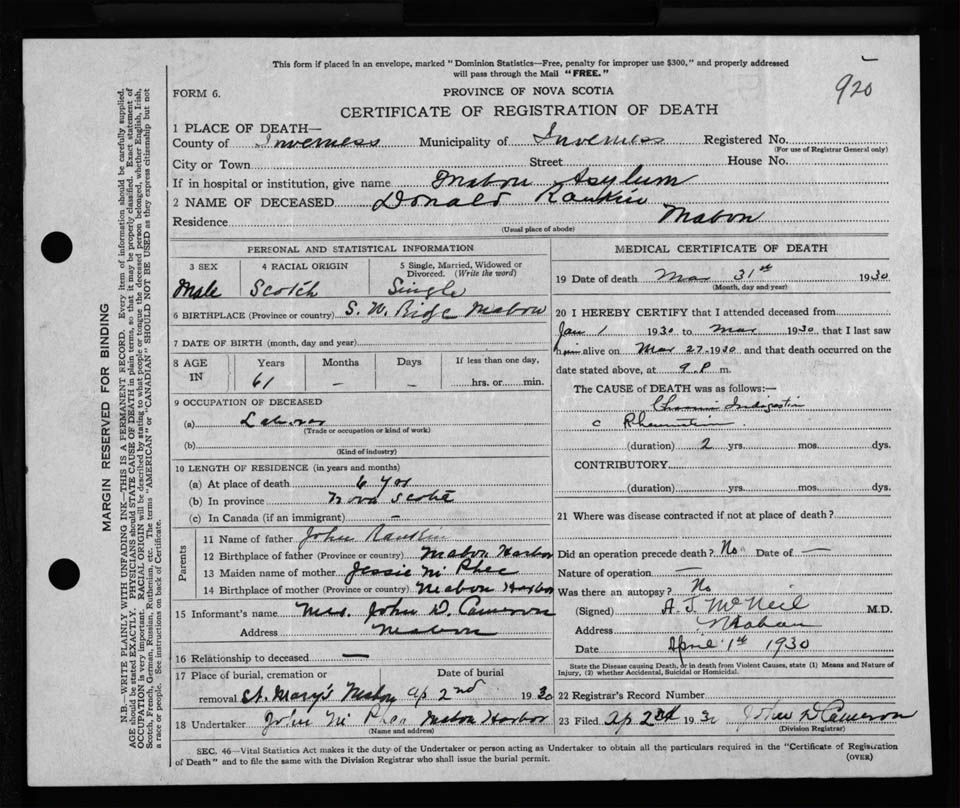 This form if placed in an envelope, marked "Dominion Statistics—Free, penalty for improper use $300," and properly addressed
will pass through the Mail "FREE."
920
FORM 6.
PROVINCE OF NOVA SCOTIA
CERTIFICATE OF REGISTRATION OF DEATH
1 PLACE OF DEATH—
County of Inverness Municipality of Inverness Registered No.
(For use of Registrar General only)
City or Town Street House No.
If in hospital or institution, give name Mabou Asylum
2 NAME OF DECEASED Donald Rankin
Residence Mabou
(Usual place of abode)
PERSONAL AND STATISTICAL INFORMATION
3 SEX 4 RACIAL ORIGIN 5 Single, Married, Widowed or
Divorced. (Write the word)
Male Scotch Single
6 BIRTHPLACE (Province or country) S. W. Ridge Mabou
7 DATE OF BIRTH (month, day and year)
8 AGE IN Years Months Days If less than one day,
61 — — hrs. or min.
9 OCCUPATION OF DECEASED
(a) Laborer
(Trade or occupation or kind of work)
(b)
(Kind of industry)
10 LENGTH OF RESIDENCE (in years and months)
(a) At place of death 6 yrs
(b) In province Nova Scotia
(c) In Canada (if an immigrant) —
Parents
11 Name of father John Rankin
12 Birthplace of father (Province or country) Mabou Harbor
13 Maiden name of mother Jessie McPhee
14 Birthplace of mother (Province or country) Mabou Harbor
15 Informant's name Mrs. John D. Cameron
Address Mabou
16 Relationship to deceased —
17 Place of burial, cremation or Date of burial
removal St. Mary's Mabou Ap 2nd 1930
18 Undertaker John McPhee Mabou Harbor
(Name and address)
MEDICAL CERTIFICATE OF DEATH
19 Date of death Mar 31st 1930
(Month, day and year)
20 I HEREBY CERTIFY that I attended deceased from
Jan 1 1930 to Mar 1930 that I last saw
him alive on Mar 27 1930 and that death occurred on the
date stated above, at 9 P m.
The CAUSE of DEATH was as follows:—
Chronic Indigestion
c Rheumatism.
(duration) 2 yrs. mos. dys.
CONTRIBUTORY
(duration) yrs. mos. dys.
21 Where was disease contracted if not at place of death?
Did an operation precede death? No Date of —
Nature of operation —
Was there an autopsy? No
(Signed) A. J. McNeil M.D.
Address Mabou
Date April 1st 1930
State the Disease causing Death, or in death from Violent Causes, state (1) Means and Nature of
Injury, (2) whether Accidental, Suicidal or Homicidal.
22 Registrar's Record Number
23 Filed Ap 2nd 193 John D Cameron
(Division Registrar)
SEC. 46—Vital Statistics Act makes it the duty of the Undertaker or person acting as Undertaker to obtain all the particulars required in the "Certificate of Registration
of Death" and to file the same with the Division Registrar who shall issue the burial permit. (OVER)
MARGIN RESERVED FOR BINDING
N.B.—WRITE PLAINLY WITH UNFADING INK—THIS IS A PERMANENT RECORD. Every item of information should be carefully supplied.
AGE should be stated EXACTLY. PHYSICIANS should STATE CAUSE OF DEATH in plain terms, so that it may be properly classified. Exact statement of
OCCUPATION is very important. RACIAL ORIGIN will be described by stating to what people or tongue the deceased person belonged, whether English, Irish,
Scotch, French, German, Russian, Ruthenian, etc. The terms "AMERICAN" or "CANADIAN" SHOULD NOT BE USED as they express citizenship but not
a race or people. See instructions on back of Certificate.